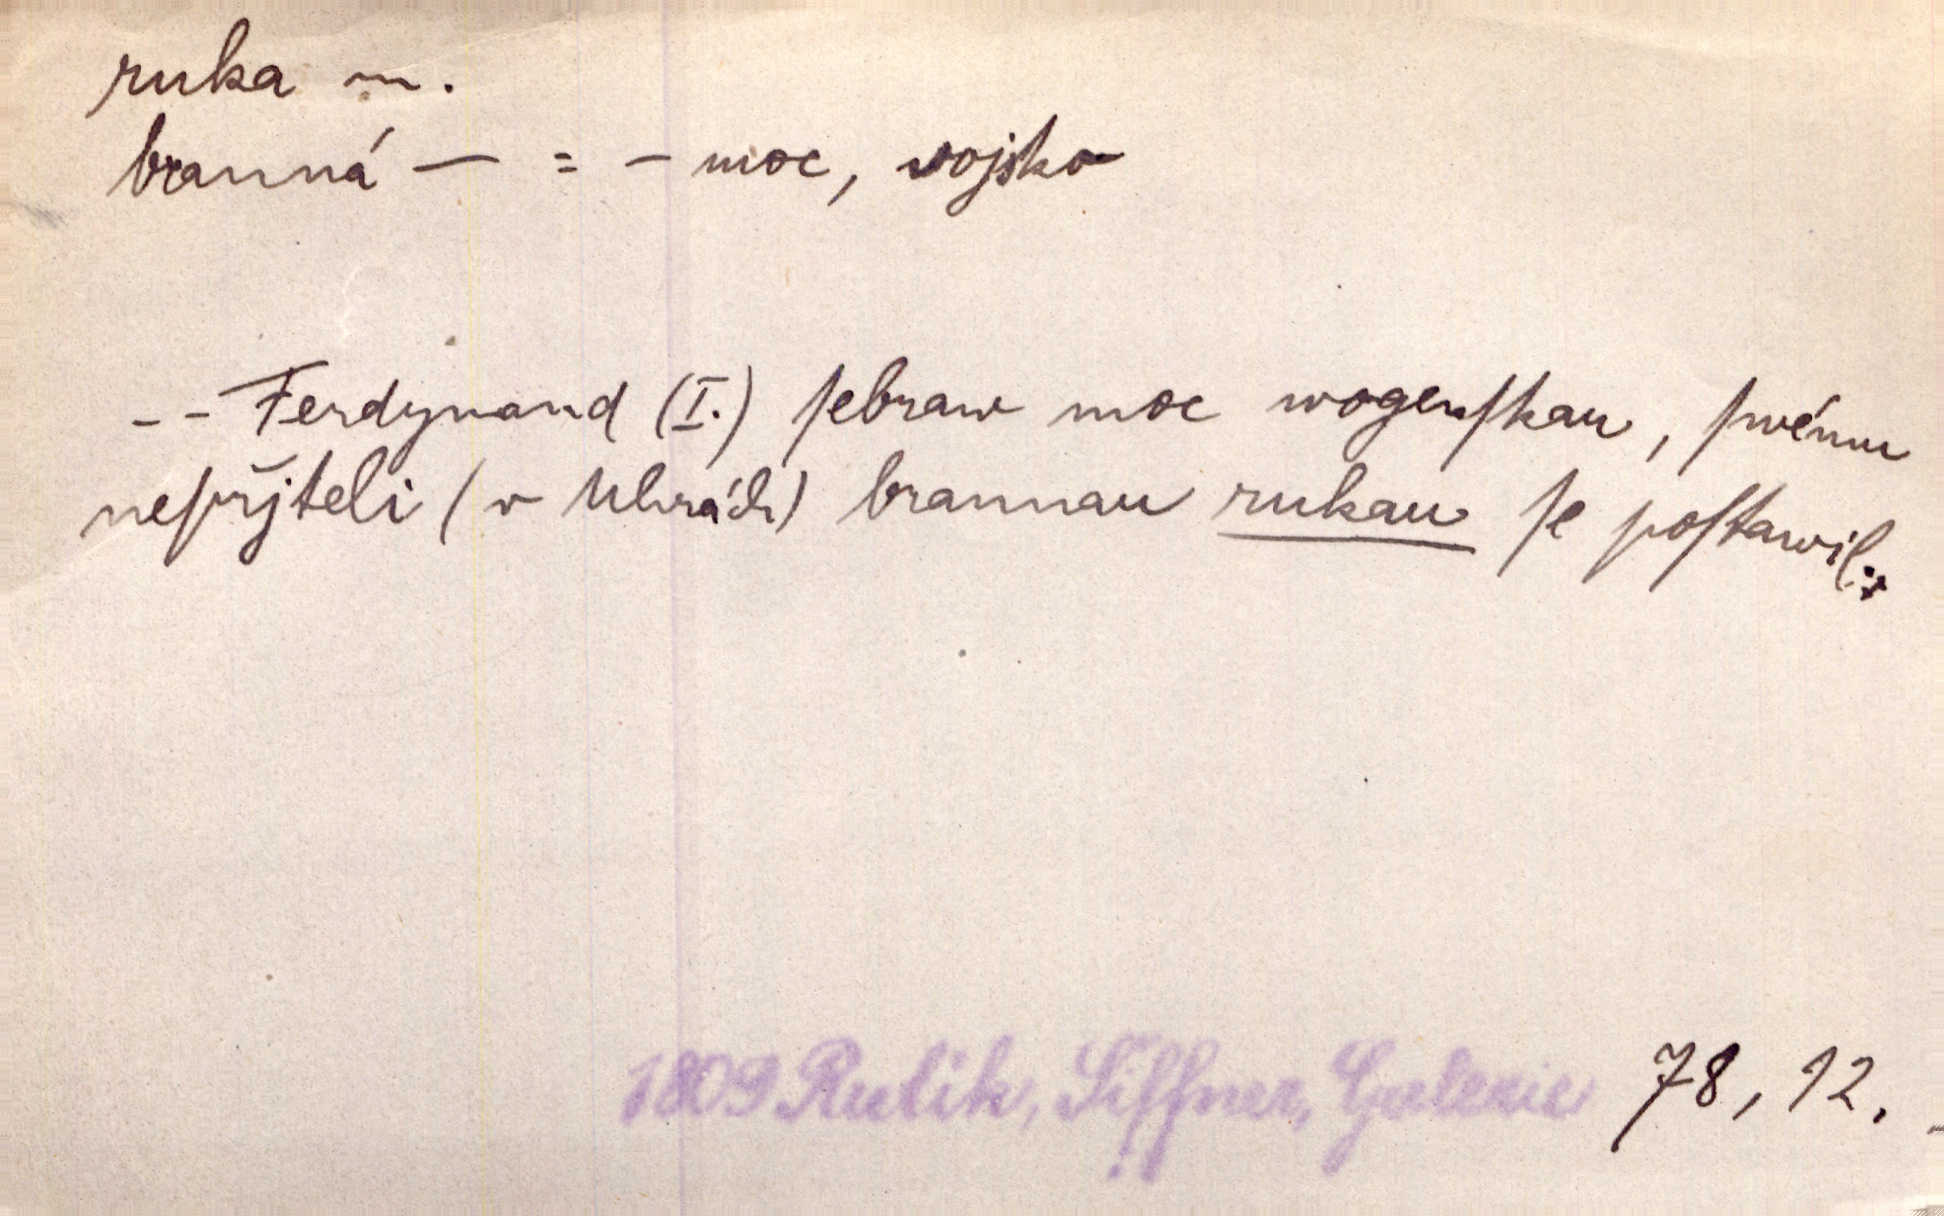 ruka m.
branná — = – moc, vojsko
-- Ferdynand (I.) ſebraw moc wogenſkau, ſwému
nepřjteli (v Uhrách) brannau rukau ſe poſtawil.
1809 Rulík, Siffner, Galerie 78, 12.